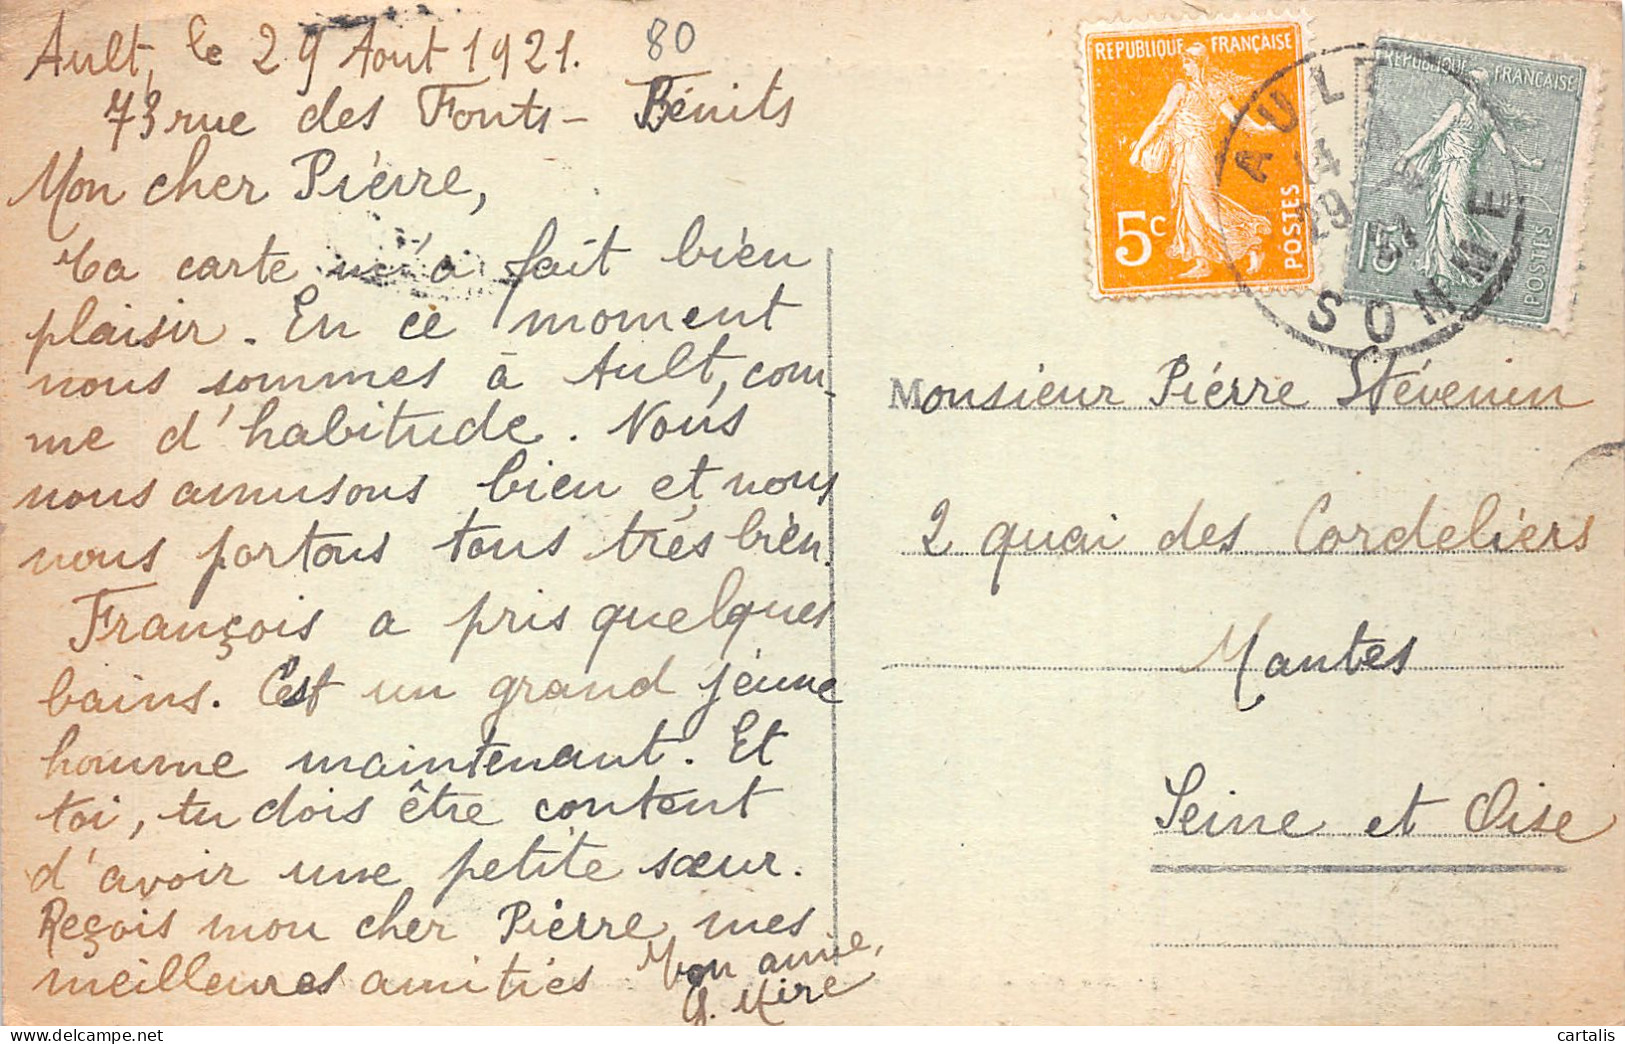 Ault, le 29 Aout 1921.
80
73 rue des Fonts-Bénits
Mon cher Pierre,
Ta carte m'a fait bien
plaisir. En ce moment
nous sommes à Ault, com-
me d'habitude. Nous
nous amusons bien et nous
nous portons tous très bien.
François a pris quelques
bains. C'est un grand jeune
homme maintenant. Et
toi, tu dois être content
d'avoir une petite sœur.
Reçois mon cher Pierre, mes
meilleures amitiés
REPUBLIQUE FRANÇAISE
5c
POSTES
REPUBLIQUE FRANÇAISE
15c
POSTES
AULT
14
29
21
SOMME
Monsieur Pierre Stévenin
2 quai des Cordeliers
Mantes
Seine et Oise
cartalis